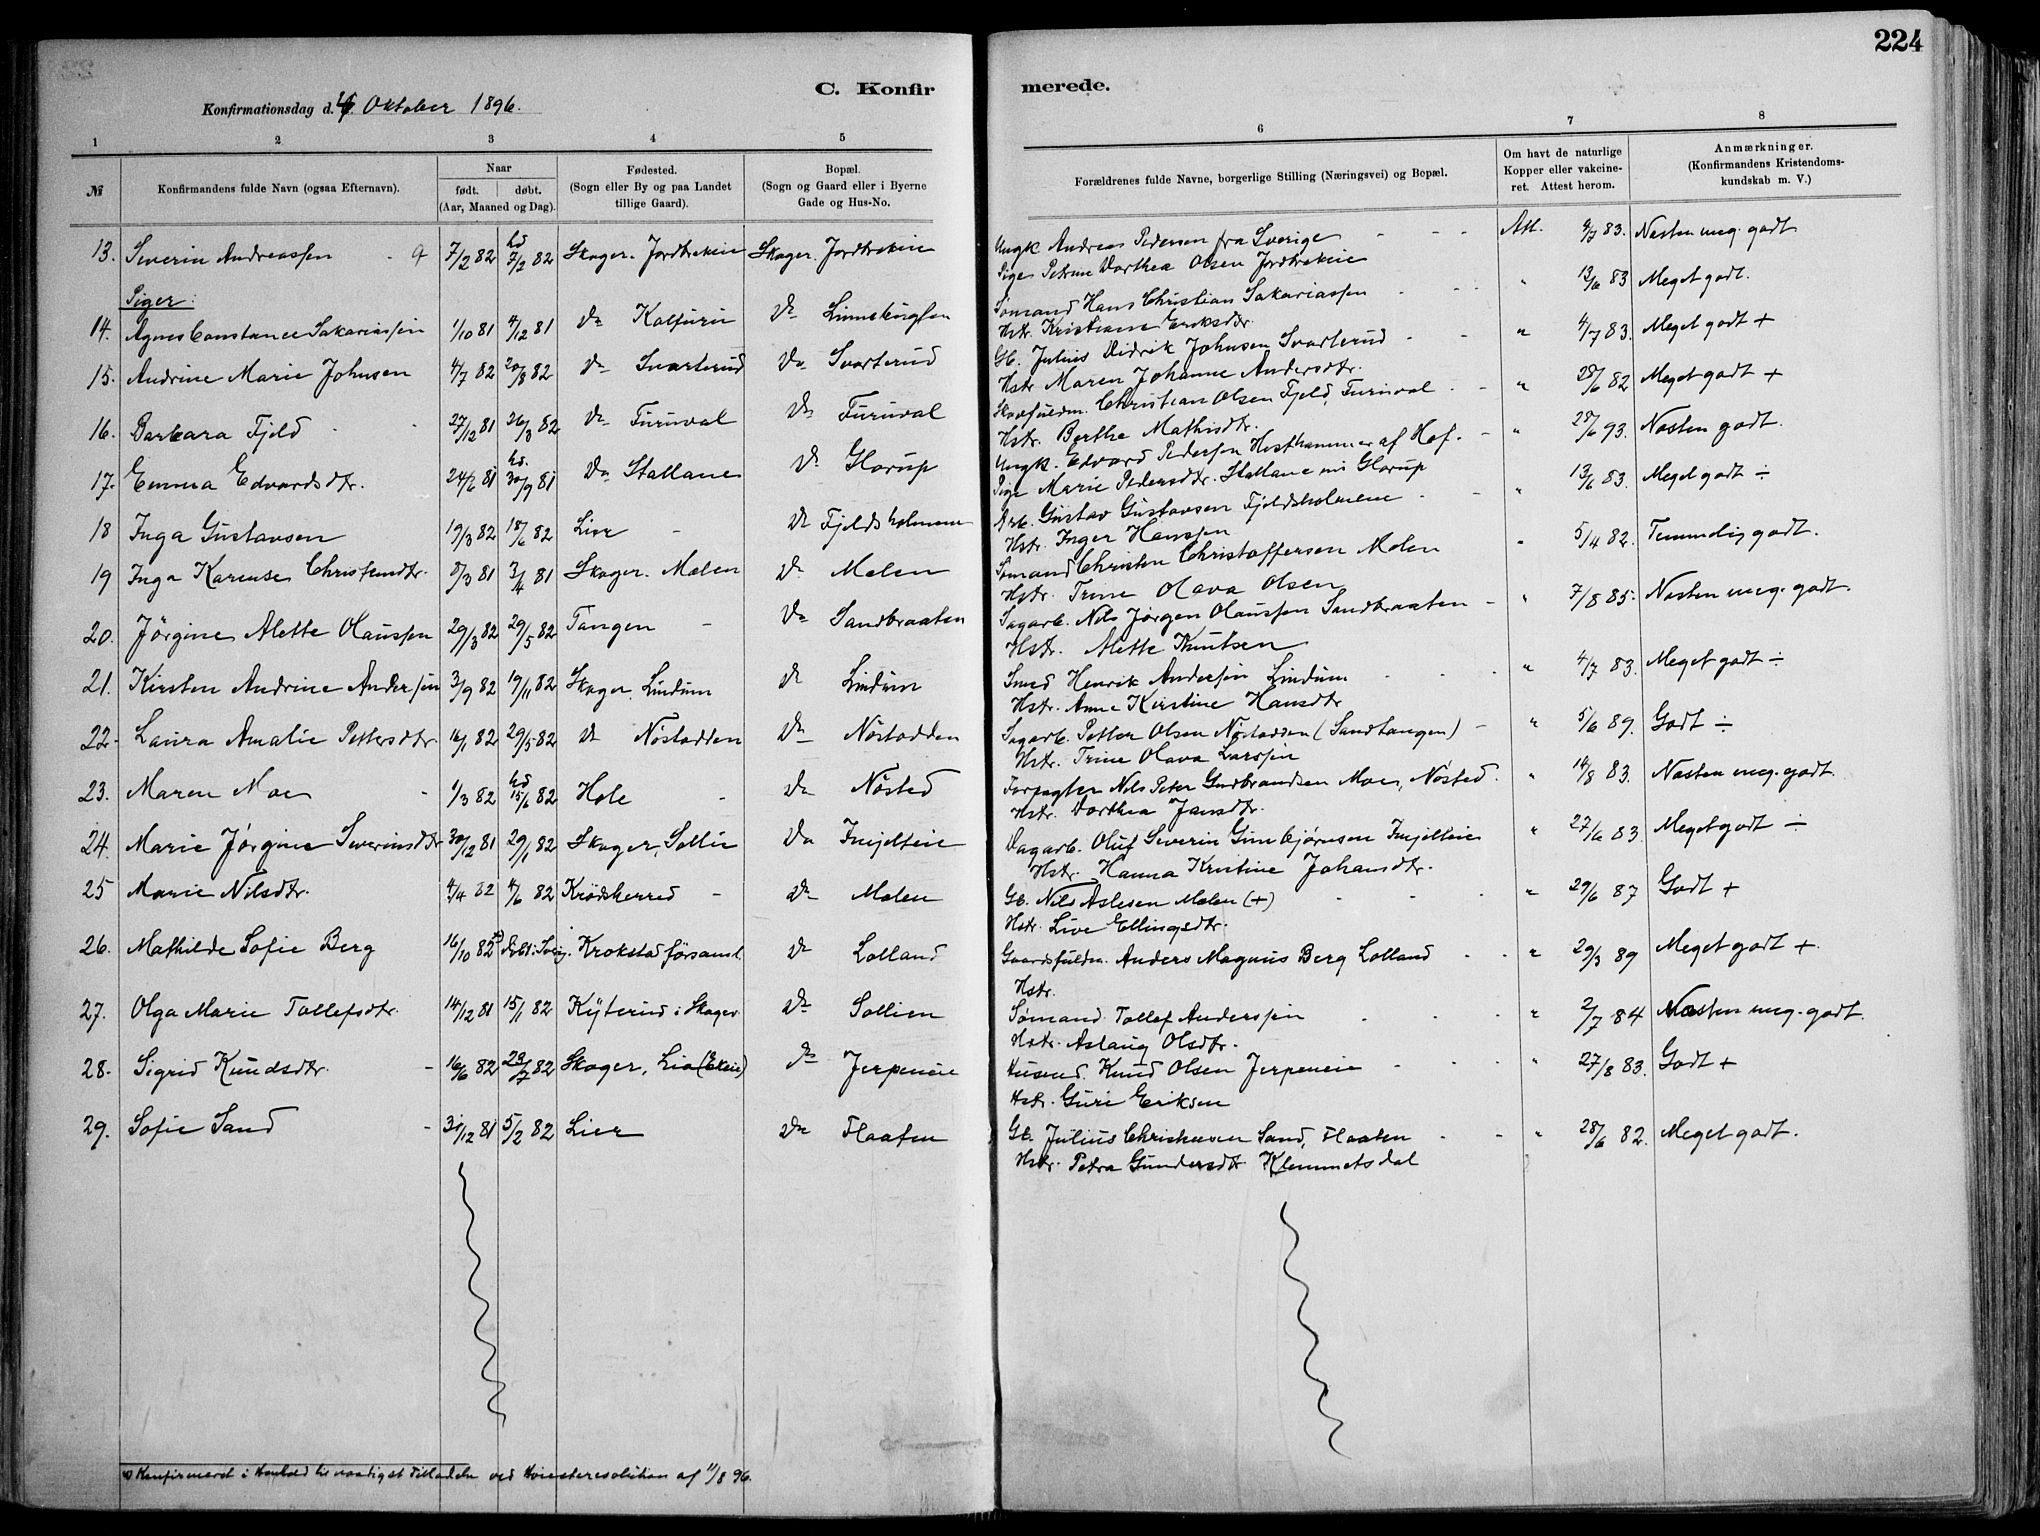 224
C. Konfirmerede.
Konfirmationsdag d. Oktober 1896.
1 2 3 4 5 6 7 8
№
Konfirmandens fulde Navn (ogsaa Efternavn).
Naar
født. døbt.
(Aar, Maaned og Dag).
Fødested.
(Sogn eller By og paa Landet
tillige Gaard).
Bopæl.
(Sogn og Gaard eller i Byerne
Gade og Hus-No.
Forældrenes fulde Navne, borgerlige Stilling (Næringsvei) og Bopæl.
Om havt de naturlige
Kopper eller vakcine-
ret. Attest herom.
Anmærkninger.
(Konfirmandens Kristendoms-
kundskab m. V.)
13. Severin Andreassen 7/2 82 hd 7/2 82 Skoger. Jordbrekeie Skoger. Jordbrekeie Ungk Andreas Pedersen fra Sverige Att. 4/7 83. Næsten meg. godt
Pige Petrine Dorthea Olsen Jordbrekeie
Piger:
14. Agnes Constance Sakariassen 1/10 81 4/12 81 Do Kolfuru Do Sømand Hans Christian Sakariassen " 13/6 83 Meget godt.
Hstr. Kristiane Eriksdtr.
15. Andrine Marie Johnsen 4/7 82 20/8 82 Do Svarterud Do Svarterud Gb. Julius Didrik Johnsen Svarterud " 4/7 83. Meget godt +
Hstr Maren Johanne Andersdtr.
16. Barbara Fjeld 27/12 81 26/3 82 Do Furuval Do Furuval Skovfuldm. Christian Olsen Fjeld, Furuval " 28/6 82 Meget godt +
Hstr. Berthe Mathisdtr.
17. Emma Edvardsdtr. 24/6 81 hd. 30/9 81 Do Stallane Do Glorup Ungk. Edvard Pedersen Hesthammer af Hof. " 28/6 93. Næsten godt.
Pige Marie Pedersdtr. Stallane nu Glorup
18 Inga Gustavsen 19/3 82 18/6 82 Lier Do Fjeldsholmene Arb. Gustav Gustavsen Fjeldsholmene " 13/6 83. Meget godt ÷
Hstr. Inger Hanssen
19 Inga Karense Christendtr. 8/3 81 3/4 81 Skoger. Molen Do Molen Sømand Christen Christoffersen Molen " 5/4 82. Temmelig godt.
Hstr. Trine Olava Olsen
20. Jørgine Alette Olaussen 29/3 82 29/5 82 Tangen Do Sandbraaten Sagarb. Nils Jørgen Olaussen Sandbraaten " 7/8 85. Næsten meg. godt.
Hstr. Alette Knutsen
21. Kirsten Andrine Andersen 3/9 82 19/11 82 Skoger Lindum Do Lindum Smed Henrik Andersen Lindum " 4/7 83. Meget godt ÷
Hstr. Anne Kirstine Hansdtr
22. Laura Amalie Pettersdtr 16/1 82 29/5 82 Do Nöstodden Do Nöstodden Sagarb. Petter Olsen Nöstodden (Sandtangen) " 5/6 89. Godt ÷
Hstr. Trine Olava Larssen
23. Maren Moe 1/3 82 hd 15/6 82 Hole Do Nøsted Forpagter Nils Peter Gudbrandsen Moe, Nøsted " 14/8 83. Næsten meg. godt.
Hstr. Dorthea Jansdtr.
24. Marie Jørgine Severinsdtr 30/12 81 29/1 82 Skoger, Sollie Do Dagarb. Oluf Severin Gunbjørnsen " 27/6 83. Meget godt ÷
Hstr. Hanna Kristine Johansdtr.
25 Marie Nilsdtr. 4/4 82 4/6 82 Krödsherred Do Molen Gb. Nils Aslesen Molen (+) " 29/6 87 Godt +
Hstr. Live Ellingsdtr.
26. Mathilde Sofie Berg 16/10 82 *) Døbt i Sverig. Krokstad församl. Do Lolland Gaardsfuldm. Anders Magnus Berg Lolland " 29/3 89 Meget godt +.
Hstr.
27. Olga Marie Tollefsdtr. 14/12 81 15/1 82 Kjyterud i Skoger Do Sollien Sømand. Tollef Anderssen " 2/7 84 Næsten meg. godt.
Hstr. Aslaug Olsdtr.
28. Sigrid Knudsdtr. 16/6 82 23/7 82 Skoger, Lia (Ekeie) Do Jerpeneie Husmd. Knud Olsen Jerpeneie " 27/8 83. Godt +
Hstr. Guri Eriksen
29. Sofie Sand 31/12 81 5/2 82 Lier Do Flaaten Gb. Julius Christensen Sand, Flaaten " 28/6 82. Meget godt.
Hstr. Petra Gundersdtr. Klemmetsdal
*) Konfirmeret i Henhold til naadigst Tilladelse ved Høiesteresolution af 11/8 96.